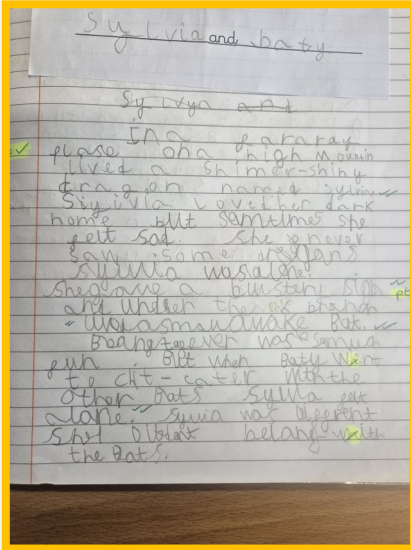 Sylvia and baty
Sylvya and
In a fararay
plase on a high mounin
lived a shimer-shiny
dragon named sylvia
Siylivia loved her dark
home but semtimes she
felt sad. She never
saw some dragons
sylvia was alone.
she gave a blustery sigh
and undser the oak branch
was a small awake Bat.
Beang togever was samuch
fun. But when Baty went
to chit-cater with the
other Bats sylvia felt
alone. sylvia was Different
she Dibdent belang with
the Bats.